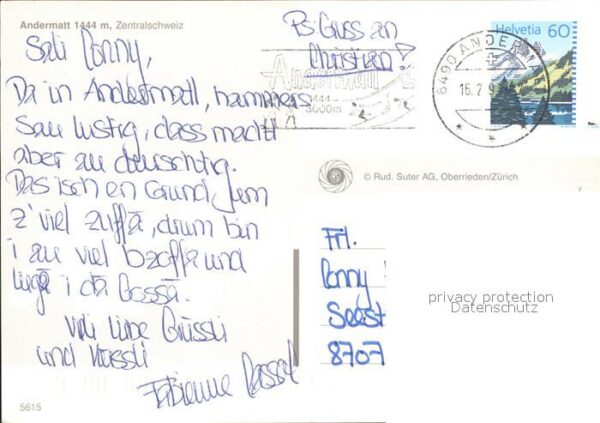 Andermatt 1444 m, Zentralschweiz
Sali Conny,
Da in Andermatt, hammers
Sau lustig, dass macht
aber au dauschtig.
Das isch en Grund, zum
z'viel zuffä, drum bin
i au viel bzoffe und
liegä i dä Gossä.
Vili liebe Grüssli
und Küssli
Fabienne
PS: Gruss an
Christian!
Andermatt
1444
3000m
Helvetia 60
6490 ANDERMATT
16.2.9
© Rud. Suter AG, Oberrieden/Zürich
Frl.
Conny
Seest
8707
privacy protection
Datenschutz
5615